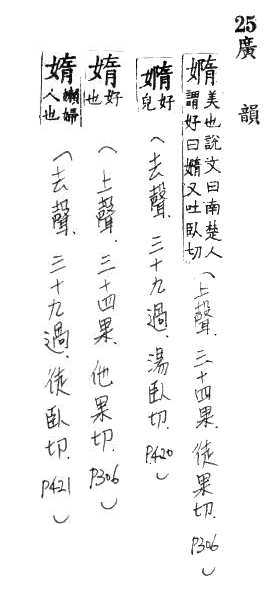 25 廣韻
嫷 美也說文曰南楚人謂好曰嫷又吐臥切(上聲、三十四果、徒果切. P306)
嫷 好皃(去聲、三十九過、湯臥切. P420)
媠 好也(上聲、三十四果、他果切. P306)
媠 嬾婦人也(去聲、三十九過、徒臥切. P421)